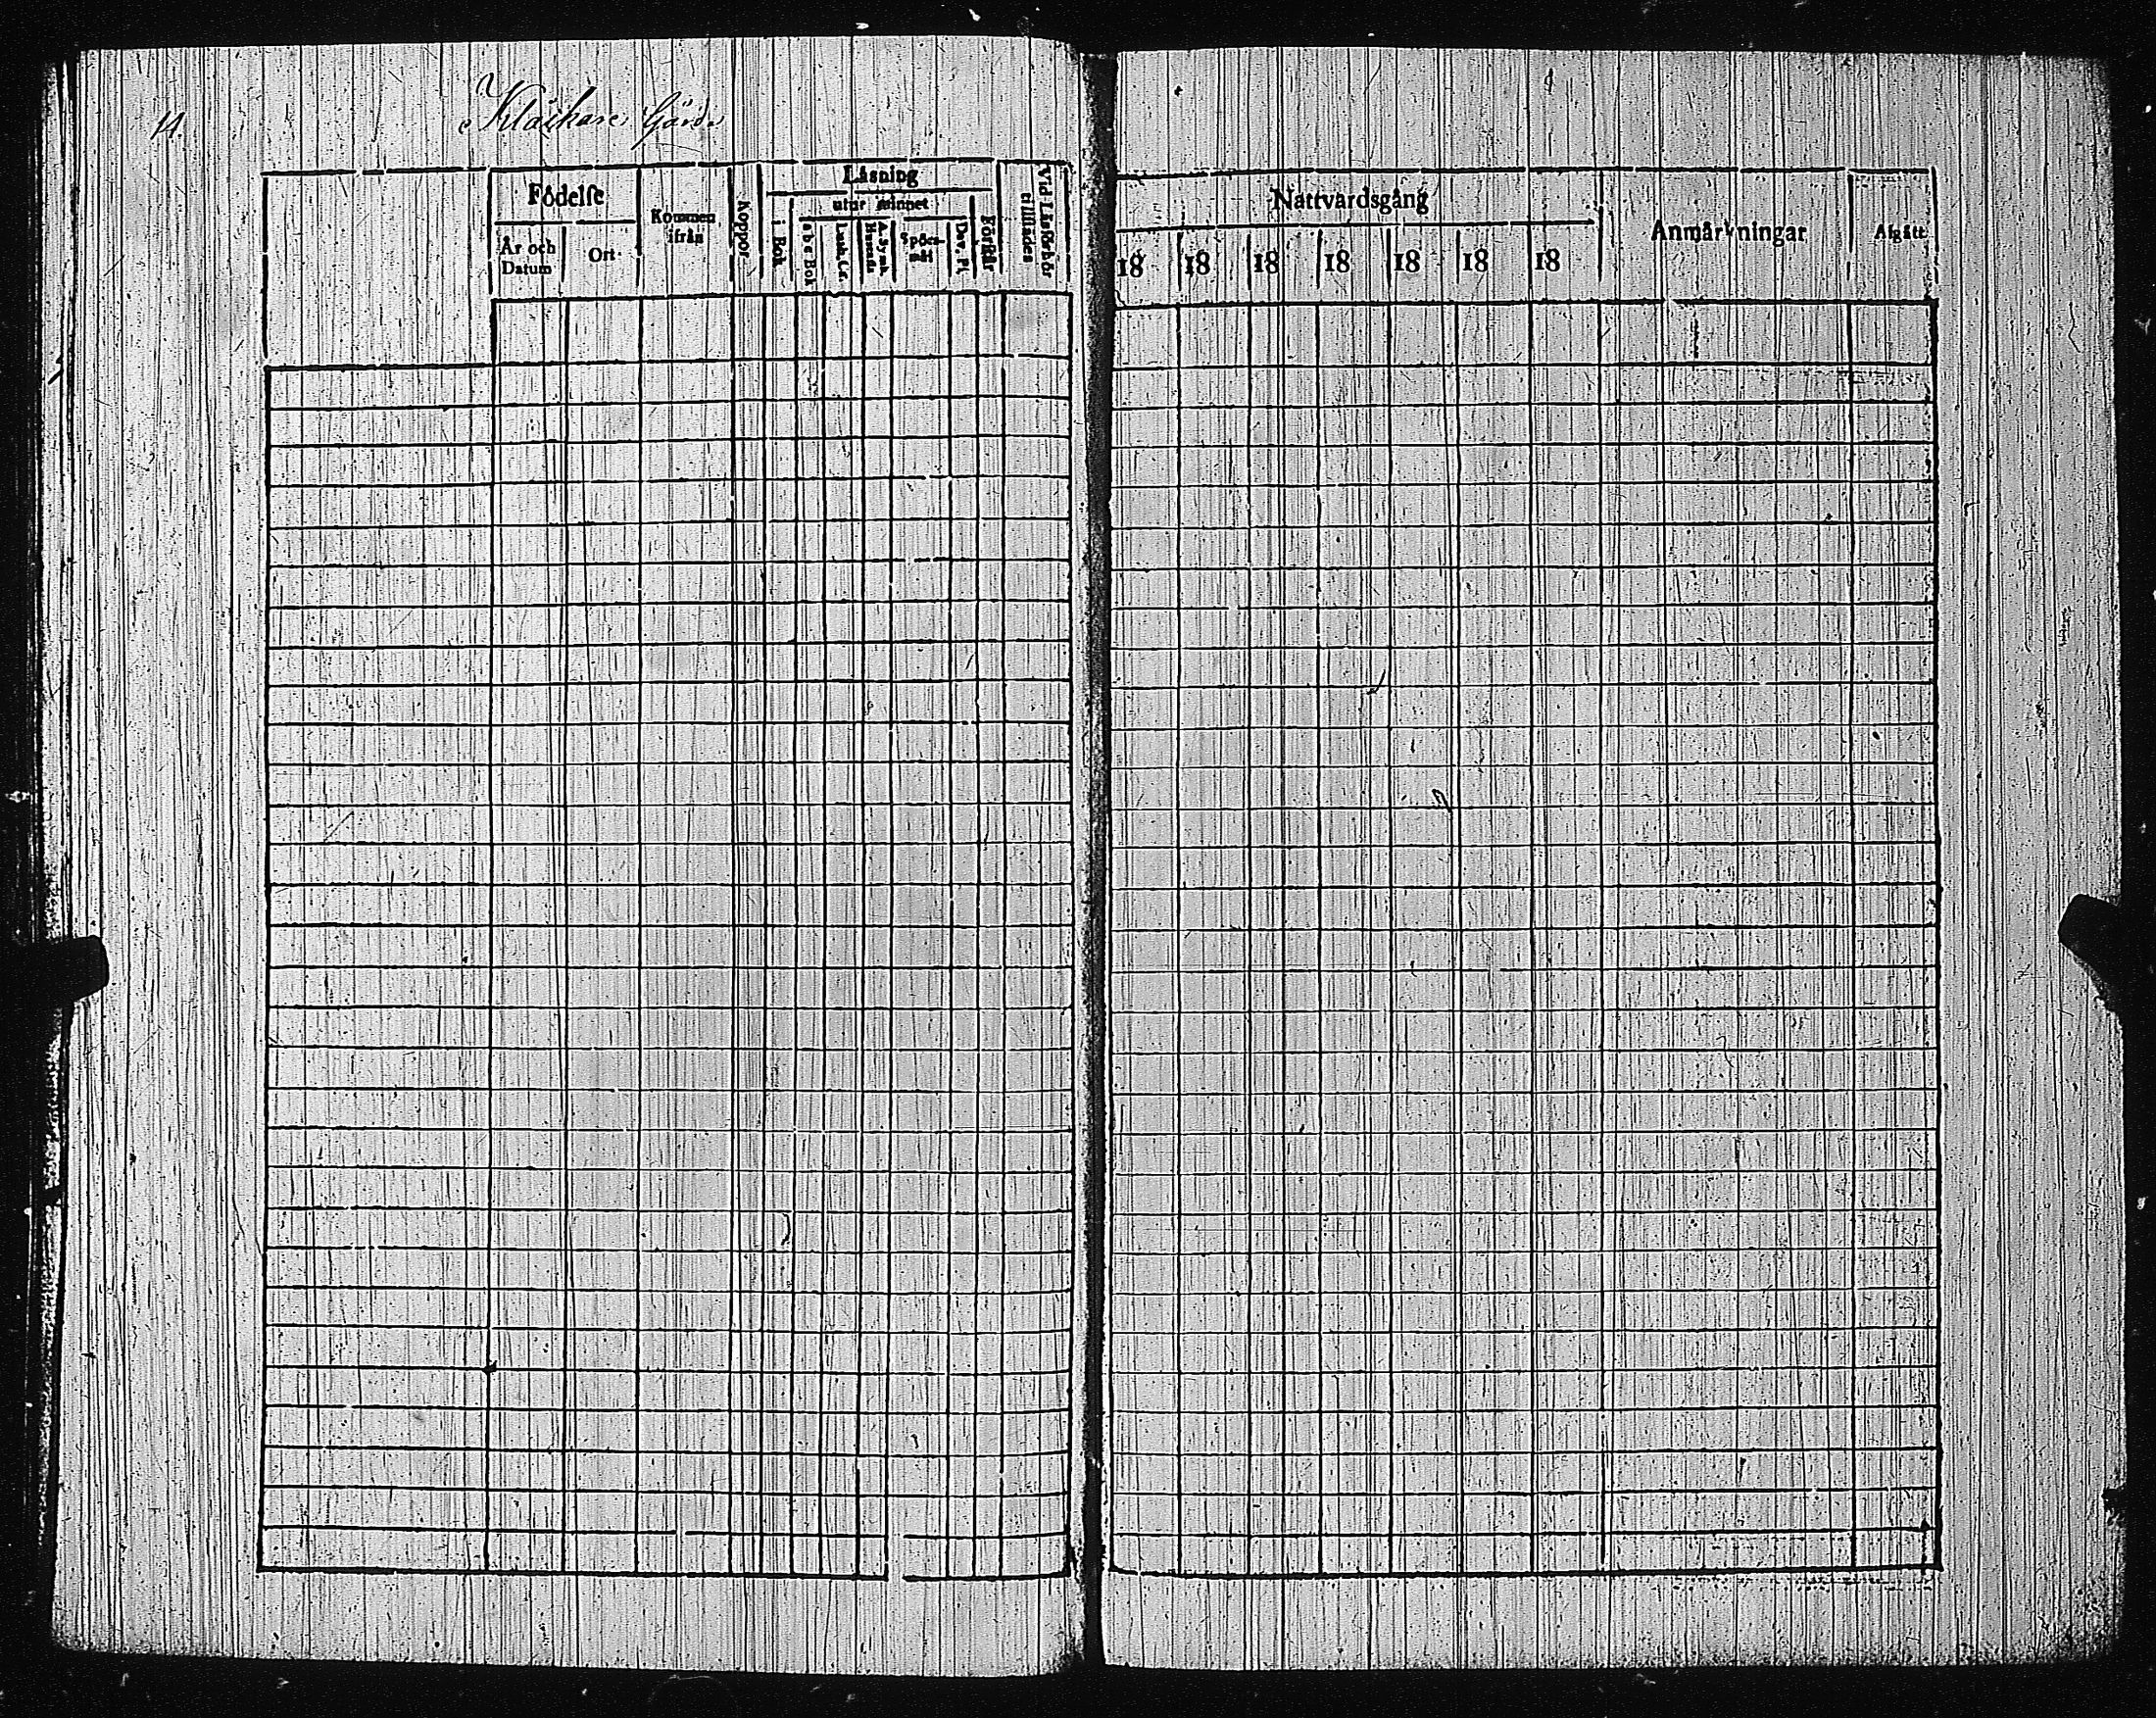 14.
Klåckare Gård
Födelse
År och Datum
Ort
Kommen ifrån
Koppor
Läsning
i Bok
utur minnet
a b c Bok
Luth. C.
A. Symb. Hustafla
Spörsmål
Dav. Ps.
Förstår
Vid Läsförhör tillstädes
Nattvardsgång
18 18 18 18 18 18 18
Anmärkningar
Afgått